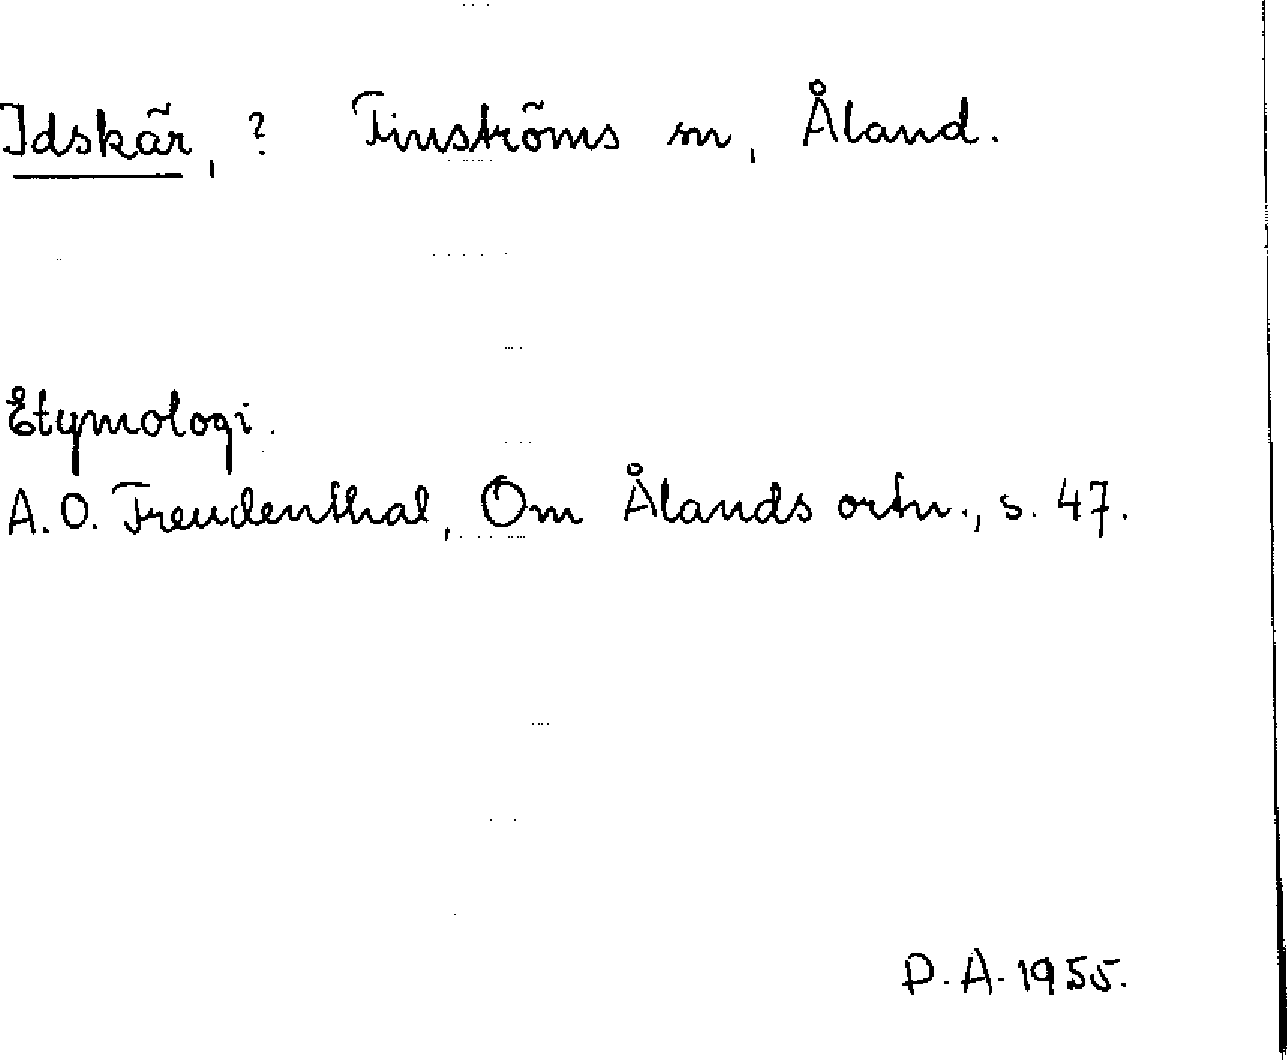 Idskär, ? Finströms sn, Åland.
Etymologi.
A.O. Freudenthal, Om Ålands ortn., s. 47.
P.A. 1955.